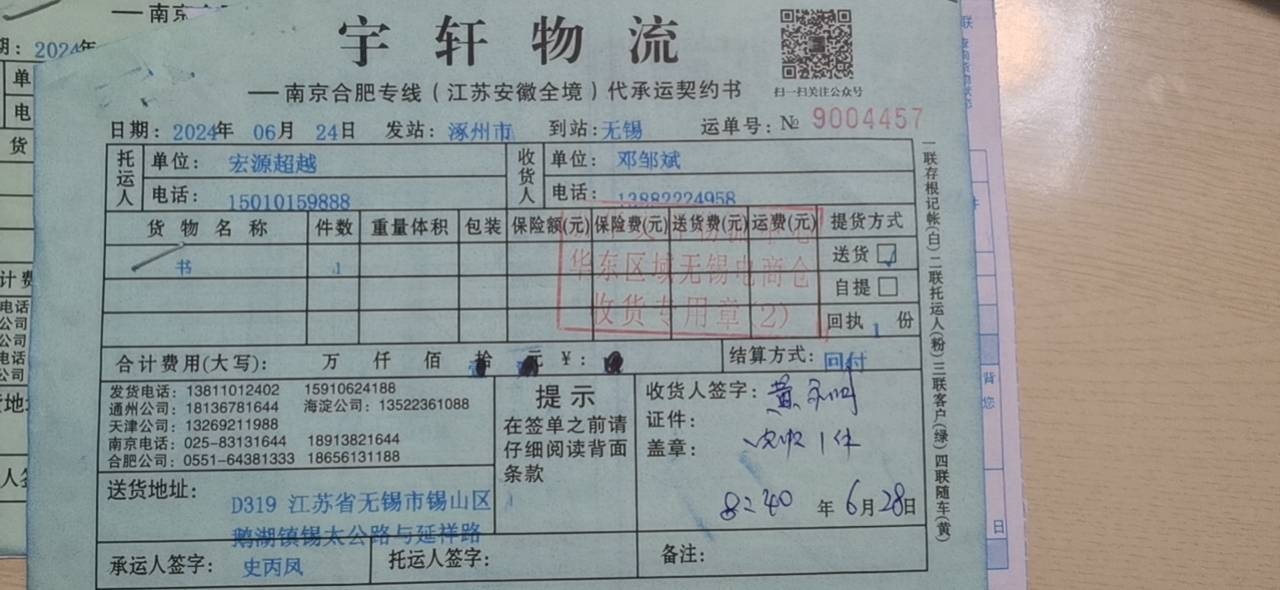 宇轩物流
一南京合肥专线(江苏安徽全境)代承运契约书
扫一扫关注公众号
日期: 2024年 06月 24日 发站: 涿州市 到站: 无锡 运单号: № 9004457
托运人 单位: 宏源超越 收货人 单位: 邓邹斌
电话: 15010159888 电话: 13882224958
货物名称 件数 重量体积 包装 保险额(元) 保险费(元) 送货费(元) 运费(元) 提货方式
书 1 送货
自提
回执 1 份
华东区域无锡电商仓
收货专用章(2)
合计费用(大写): 万 仟 佰 拾 元 ¥: 结算方式: 回付
发货电话: 13811012402 15910624188
通州公司: 18136781644 海淀公司: 13522361088
天津公司: 13269211988
南京电话: 025-83131644 18913821644
合肥公司: 0551-64381333 18656131188
提示
在签单之前请
仔细阅读背面
条款
收货人签字: 黄
证件:
盖章: 实收1件
8:40 年 6月28日
送货地址: D319 江苏省无锡市锡山区
鹅湖镇锡太公路与延祥路
承运人签字: 史丙凤 托运人签字: 备注:
一联存根记帐(白) 二联托运人(粉) 三联客户(绿) 四联随车(黄)